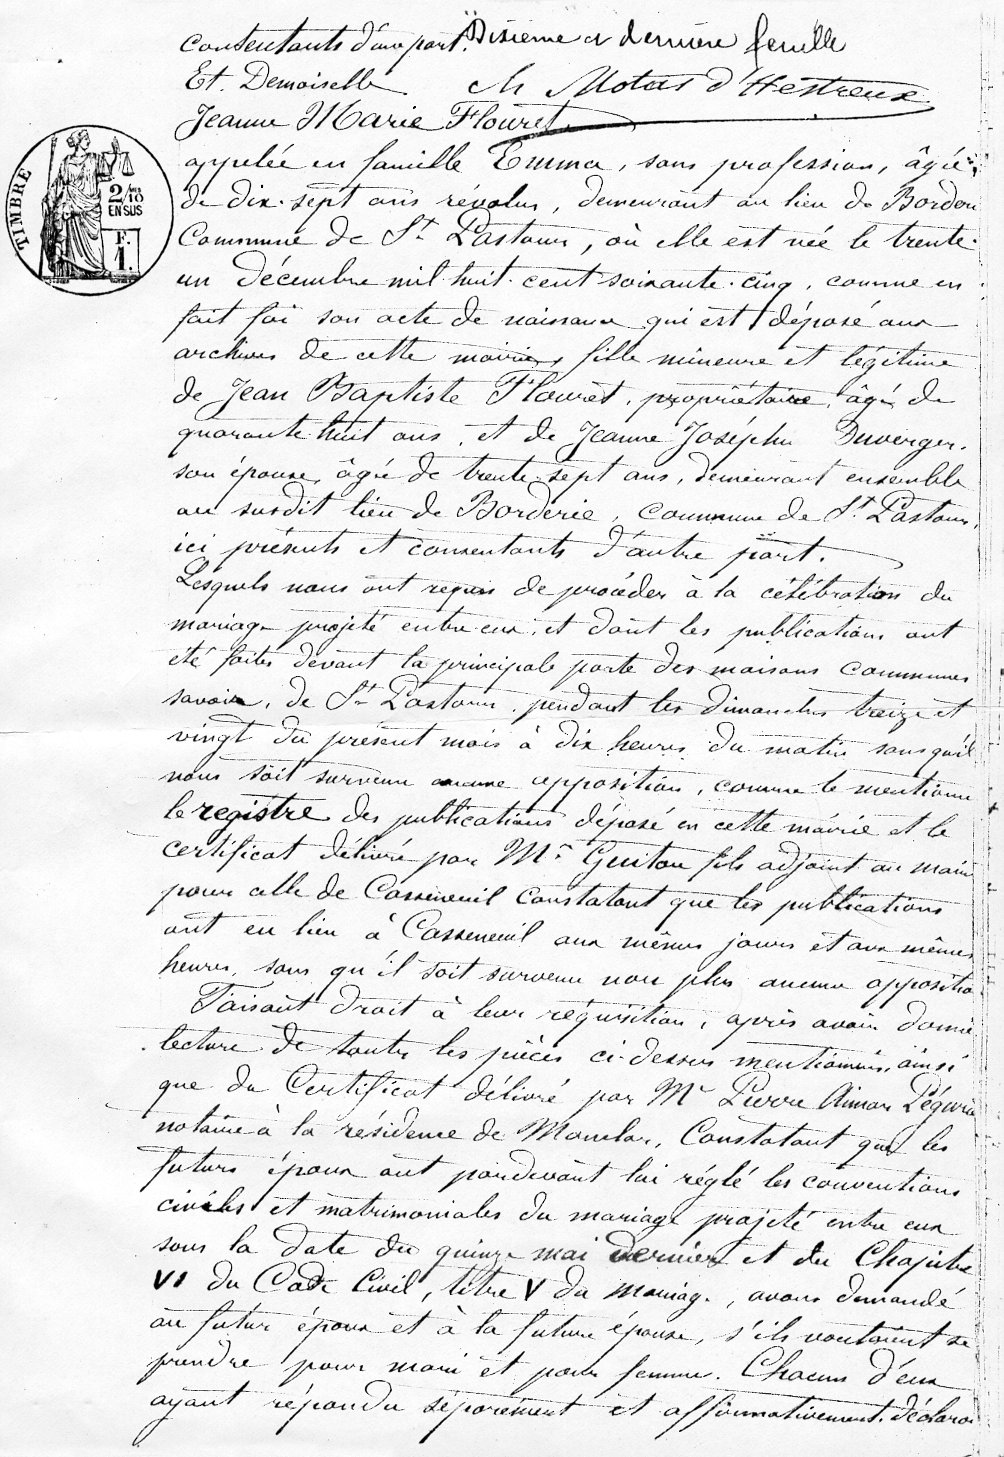 consentants d'une part. Dixième et dernière feuille
Et Demoiselle Ch Motas d'Hestreux
Jeanne Marie Flouret
appelée en famille Emma, sans profession, âgée
de dix-sept ans révolus, demeurant au lieu de Borderi
Commune de St Pastour, où elle est née le trente-
un décembre mil huit-cent soixante-cinq, comme en
fait foi son acte de naissance qui est déposé aux
archives de cette mairie, fille mineure et légitime
de Jean Baptiste Flouret, propriétaire, âgé de
quarante huit ans, et de Jeanne Joséphe Duverger,
son épouse, âgée de trente-sept ans, demeurant ensemble
au susdit lieu de Borderie, commune de St Pastour,
ici présents et consentants d'autre part.
Lesquels nous ont requis de procéder à la célébration du
mariage projeté entre eux, et dont les publications ont
été faites devant la principale porte des maisons communes
savoir, de St Pastour, pendant les dimanches treize et
vingt du présent mois à dix heures du matin sans qu'il
nous soit survenu aucune opposition, comme le mentionne
le registre des publications déposé en cette mairie et le
certificat délivré par Mr Guitou fils adjoint au maire
pour celle de Casseneuil constatant que les publications
ont eu lieu à Casseneuil aux mêmes jours et aux mêmes
heures, sans qu'il soit survenu non plus aucune oppositio
Faisant droit à leur réquisition, après avoir donné
lecture de toutes les pièces ci-dessus mentionnées, ainsi
que du Certificat délivré par Mr Pierre Aimar
notaire à la résidence de Monclar, Constatant que les
futurs époux ont pardevant lui réglé les conventions
civiles et matrimoniales du mariage projeté entre eux
sous la date du quinze mai dernier et du Chapitre
VI du Code Civil, titre V du mariage, avons demandé
au futur époux et à la future épouse, s'ils voulaient se
prendre pour mari et pour femme. Chacun d'eux
ayant répondu séparément et affirmativement, déclaro
TIMBRE
2/10
EN SUS
F.
1.